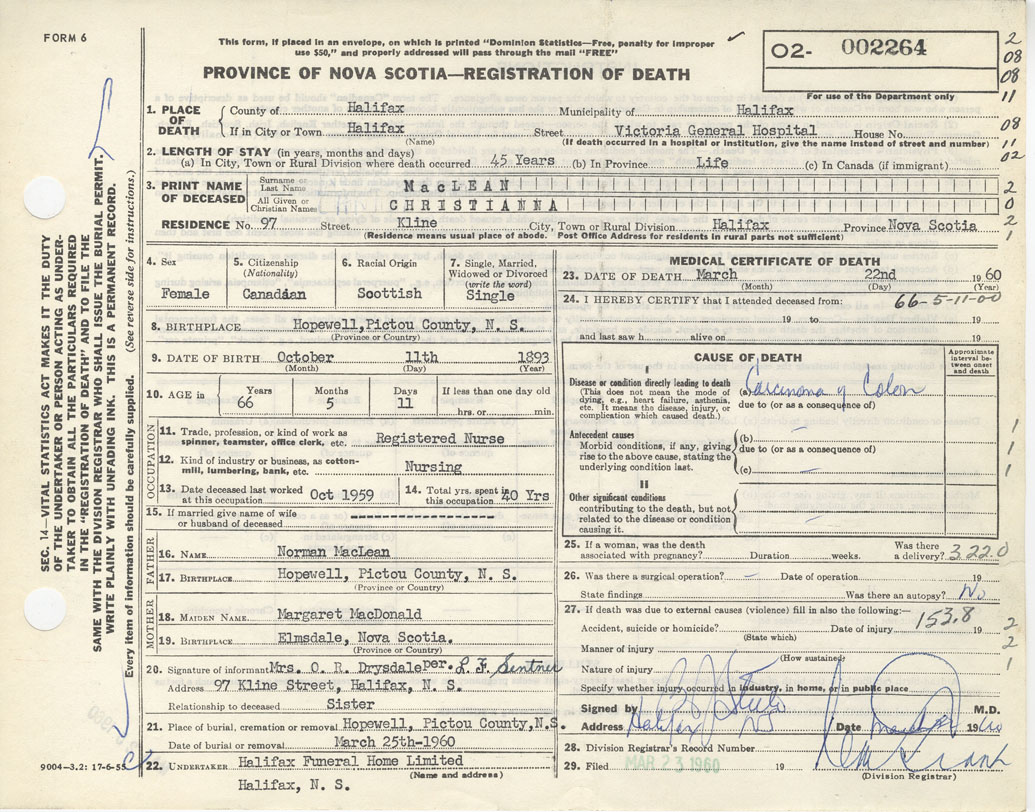 FORM 6
This form, if placed in an envelope, on which is printed "Dominion Statistics—Free, penalty for improper
use $50," and properly addressed will pass through the mail "FREE"
PROVINCE OF NOVA SCOTIA—REGISTRATION OF DEATH
O2- 002264
For use of the Department only
2
08
08
11
08
11
02
2
0
2
1
1. PLACE OF DEATH
County of Halifax Municipality of Halifax
If in City or Town Halifax Street Victoria General Hospital House No.
(Name) (If death occurred in a hospital or Institution, give the name instead of street and number)
2. LENGTH OF STAY (in years, months and days)
(a) In City, Town or Rural Division where death occurred 45 Years (b) In Province Life (c) In Canada (if immigrant)
3. PRINT NAME OF DECEASED
Surname or Last Name MacLEAN
All Given or Christian Names CHRISTIANNA
RESIDENCE No. 97 Street Kline City, Town or Rural Division Halifax Province Nova Scotia
(Residence means usual place of abode. Post Office Address for residents in rural parts not sufficient)
4. Sex
Female
5. Citizenship
(Nationality)
Canadian
6. Racial Origin
Scottish
7. Single, Married,
Widowed or Divorced
(write the word)
Single
8. BIRTHPLACE Hopewell,Pictou County, N. S.
(Province or Country)
9. DATE OF BIRTH October 11th 1893
(Month) (Day) (Year)
10. AGE in
Years 66
Months 5
Days 11
If less than one day old
hrs. or min.
OCCUPATION
11. Trade, profession, or kind of work as
spinner, teamster, office clerk, etc. Registered Nurse
12. Kind of industry or business, as cotton-
mill, lumbering, bank, etc. Nursing
13. Date deceased last worked
at this occupation Oct 1959
14. Total yrs. spent in
this occupation 40 Yrs
15. If married give name of wife
or husband of deceased
FATHER
16. NAME Norman MacLean
17. BIRTHPLACE Hopewell, Pictou County, N. S.
(Province or Country)
MOTHER
18. MAIDEN NAME Margaret MacDonald
19. BIRTHPLACE Elmsdale, Nova Scotia.
(Province or Country)
20. Signature of informant Mrs. O. R. Drysdale per. L. F. Sentner
Address 97 Kline Street, Halifax, N. S.
Relationship to deceased Sister
21. Place of burial, cremation or removal Hopewell, Pictou County,N.S.
Date of burial or removal March 25th-1960
22. UNDERTAKER Halifax Funeral Home Limited
(Name and address)
Halifax, N. S.
9004—3.2: 17-6-55
SEC. 14—VITAL STATISTICS ACT MAKES IT THE DUTY
OF THE UNDERTAKER OR PERSON ACTING AS UNDER-
TAKER TO OBTAIN ALL THE PARTICULARS REQUIRED
IN THE "REGISTRATION OF DEATH" AND TO FILE THE
SAME WITH THE DIVISION REGISTRAR WHO SHALL ISSUE THE BURIAL PERMIT.
WRITE PLAINLY WITH UNFADING INK. THIS IS A PERMANENT RECORD.
Every item of information should be carefully supplied. (See reverse side for instructions.)
MEDICAL CERTIFICATE OF DEATH
23. DATE OF DEATH March 22nd 1960
(Month) (Day) (Year)
24. I HEREBY CERTIFY that I attended deceased from: 66-5-11-00
19 to 19
and last saw h alive on 19
CAUSE OF DEATH
Approximate interval between onset and death
I
Disease or condition directly leading to death
(This does not mean the mode of
dying, e.g., heart failure, asthenia,
etc. It means the disease, injury, or
complication which caused death.)
(a) Carcinoma of Colon
due to (or as a consequence of)
Antecedent causes
Morbid conditions, if any, giving
rise to the above cause, stating the
underlying condition last.
(b)
due to (or as a consequence of)
(c)
II
Other significant conditions
contributing to the death, but not
related to the disease or condition
causing it.
1
1
1
25. If a woman, was the death
associated with pregnancy? Duration weeks. Was there
a delivery? 322.0
26. Was there a surgical operation? Date of operation 19
State findings Was there an autopsy? No
27. If death was due to external causes (violence) fill in also the following:—
153.8
Accident, suicide or homicide? Date of injury 19
(State which)
Manner of injury
(How sustained)
Nature of injury
2
2
1
Specify whether injury occurred in industry, in home, or in public place
Signed by M.D.
Address Halifax NS Date 1960
28. Division Registrar's Record Number
29. Filed MAR 23 1960 19
(Division Registrar)